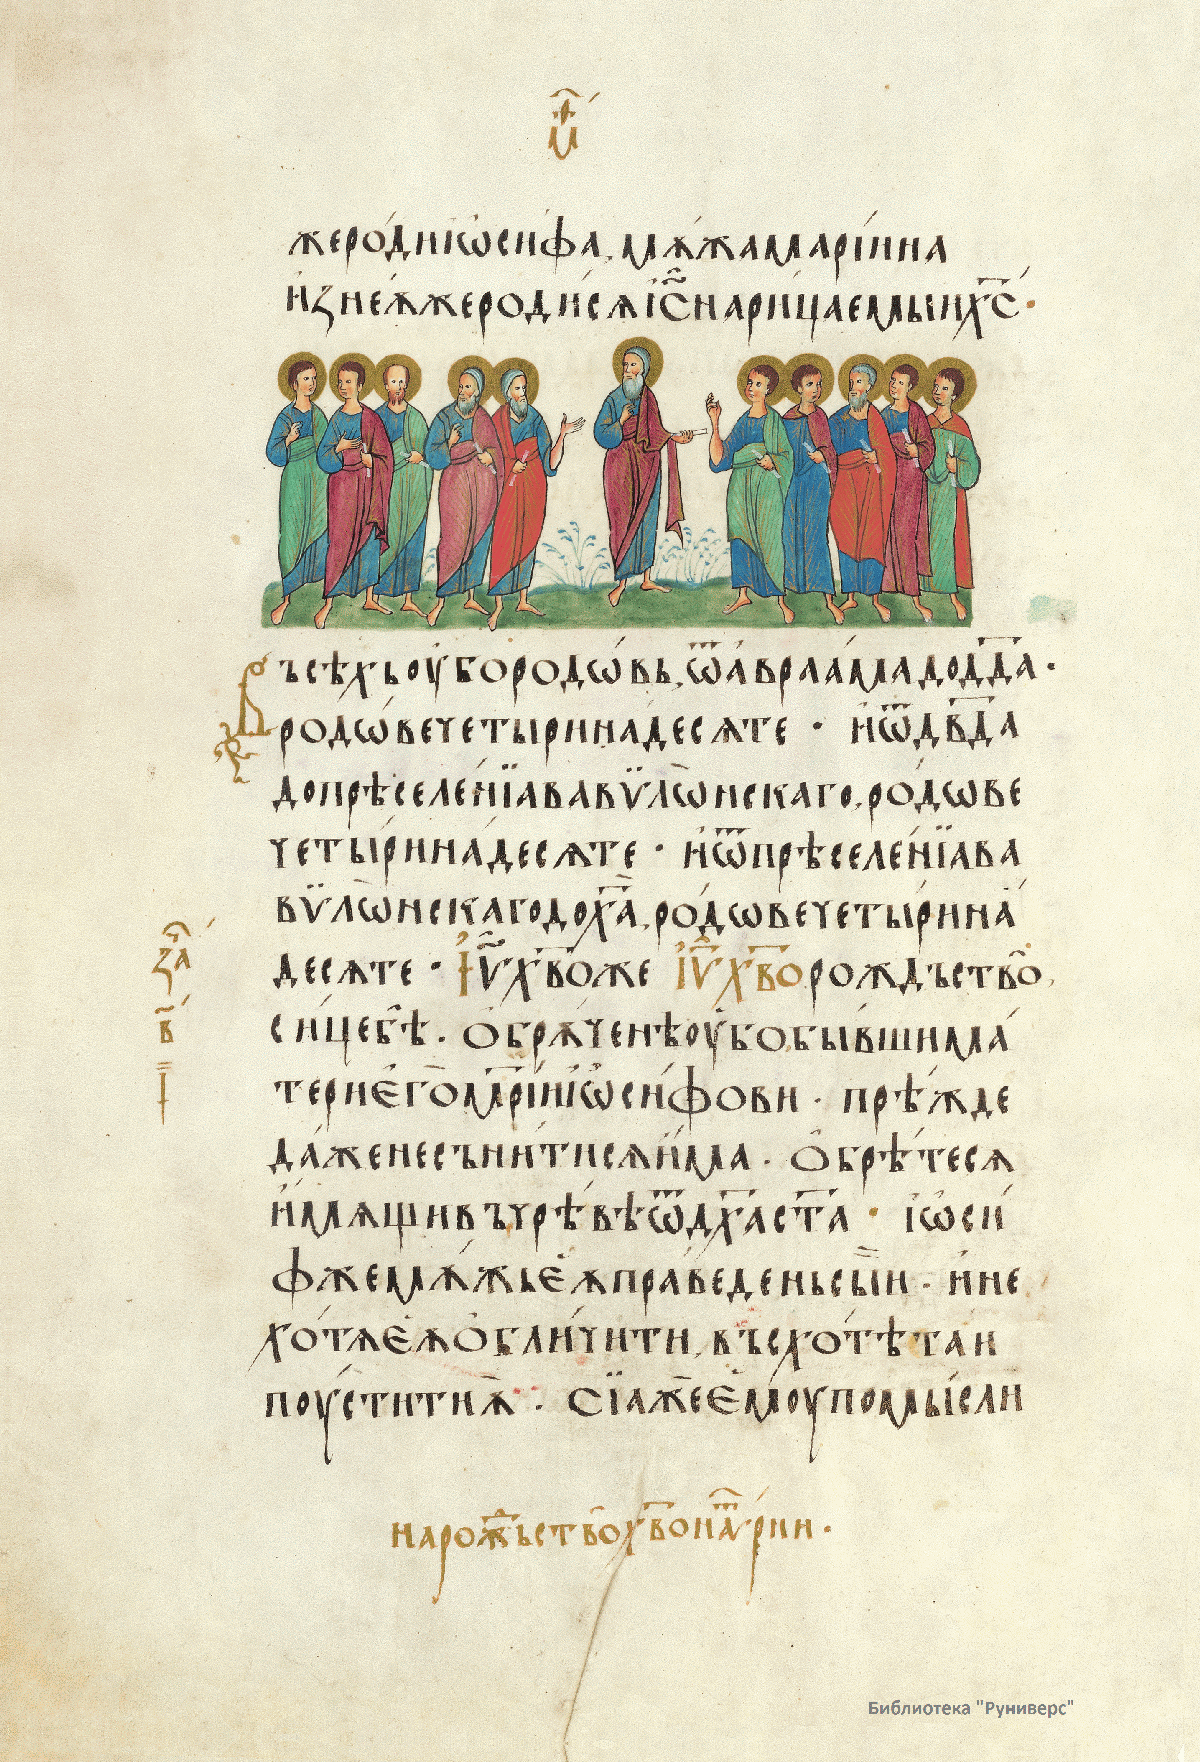 жеродиіѡсифа, мѫжамаріина
изнеѧжеродисѧіс҃нарицаемыих҃с·
Въсѣхьоубородѡвь, ѿаврламадодд҃а·
родѡвечетыринадесѧте· иѿдв҃да
допрѣселенїававѷлѡнскаго, родѡве
четыринадесѧте· иѿпрѣселенїава
вѷлѡнскагодох҃а, родѡвечетырина
десѧте· Іѵ҃х҃воже Іѵ҃х҃ворождъство,
сицебѣ. Обрѫченѣоубобывшима
териегом҃рїиіѡсифови· прѣжде
даженесънитисѧима· Обрѣтесѧ
имѫщивъчрѣвѣѿдх҃аст҃а· іѡси
фжемѫжьеѧправеденьсыи· ине
хотѧеѧобличити, въсхотѣтаи
поуститиѫ· Сїажеемоупомысли
нарожъствох҃воиѿ рии·
за҃
в҃
Библиотека "Руниверс"